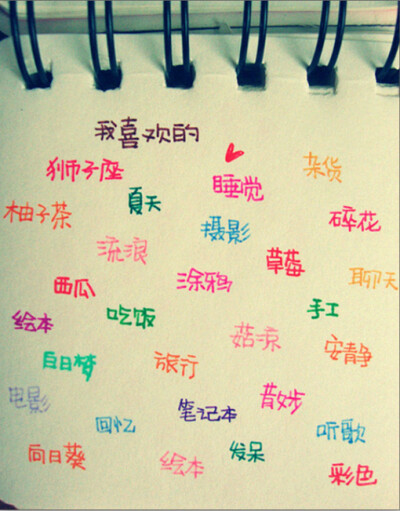 我喜欢的
狮子座
杂货
睡觉
柚子茶
夏天
碎花
摄影
流浪
草莓
聊天
西瓜
涂鸦
手工
绘本
吃饭
菇凉
安静
白日梦
旅行
电影
散步
笔记本
回忆
听歌
向日葵
发呆
绘本
彩色